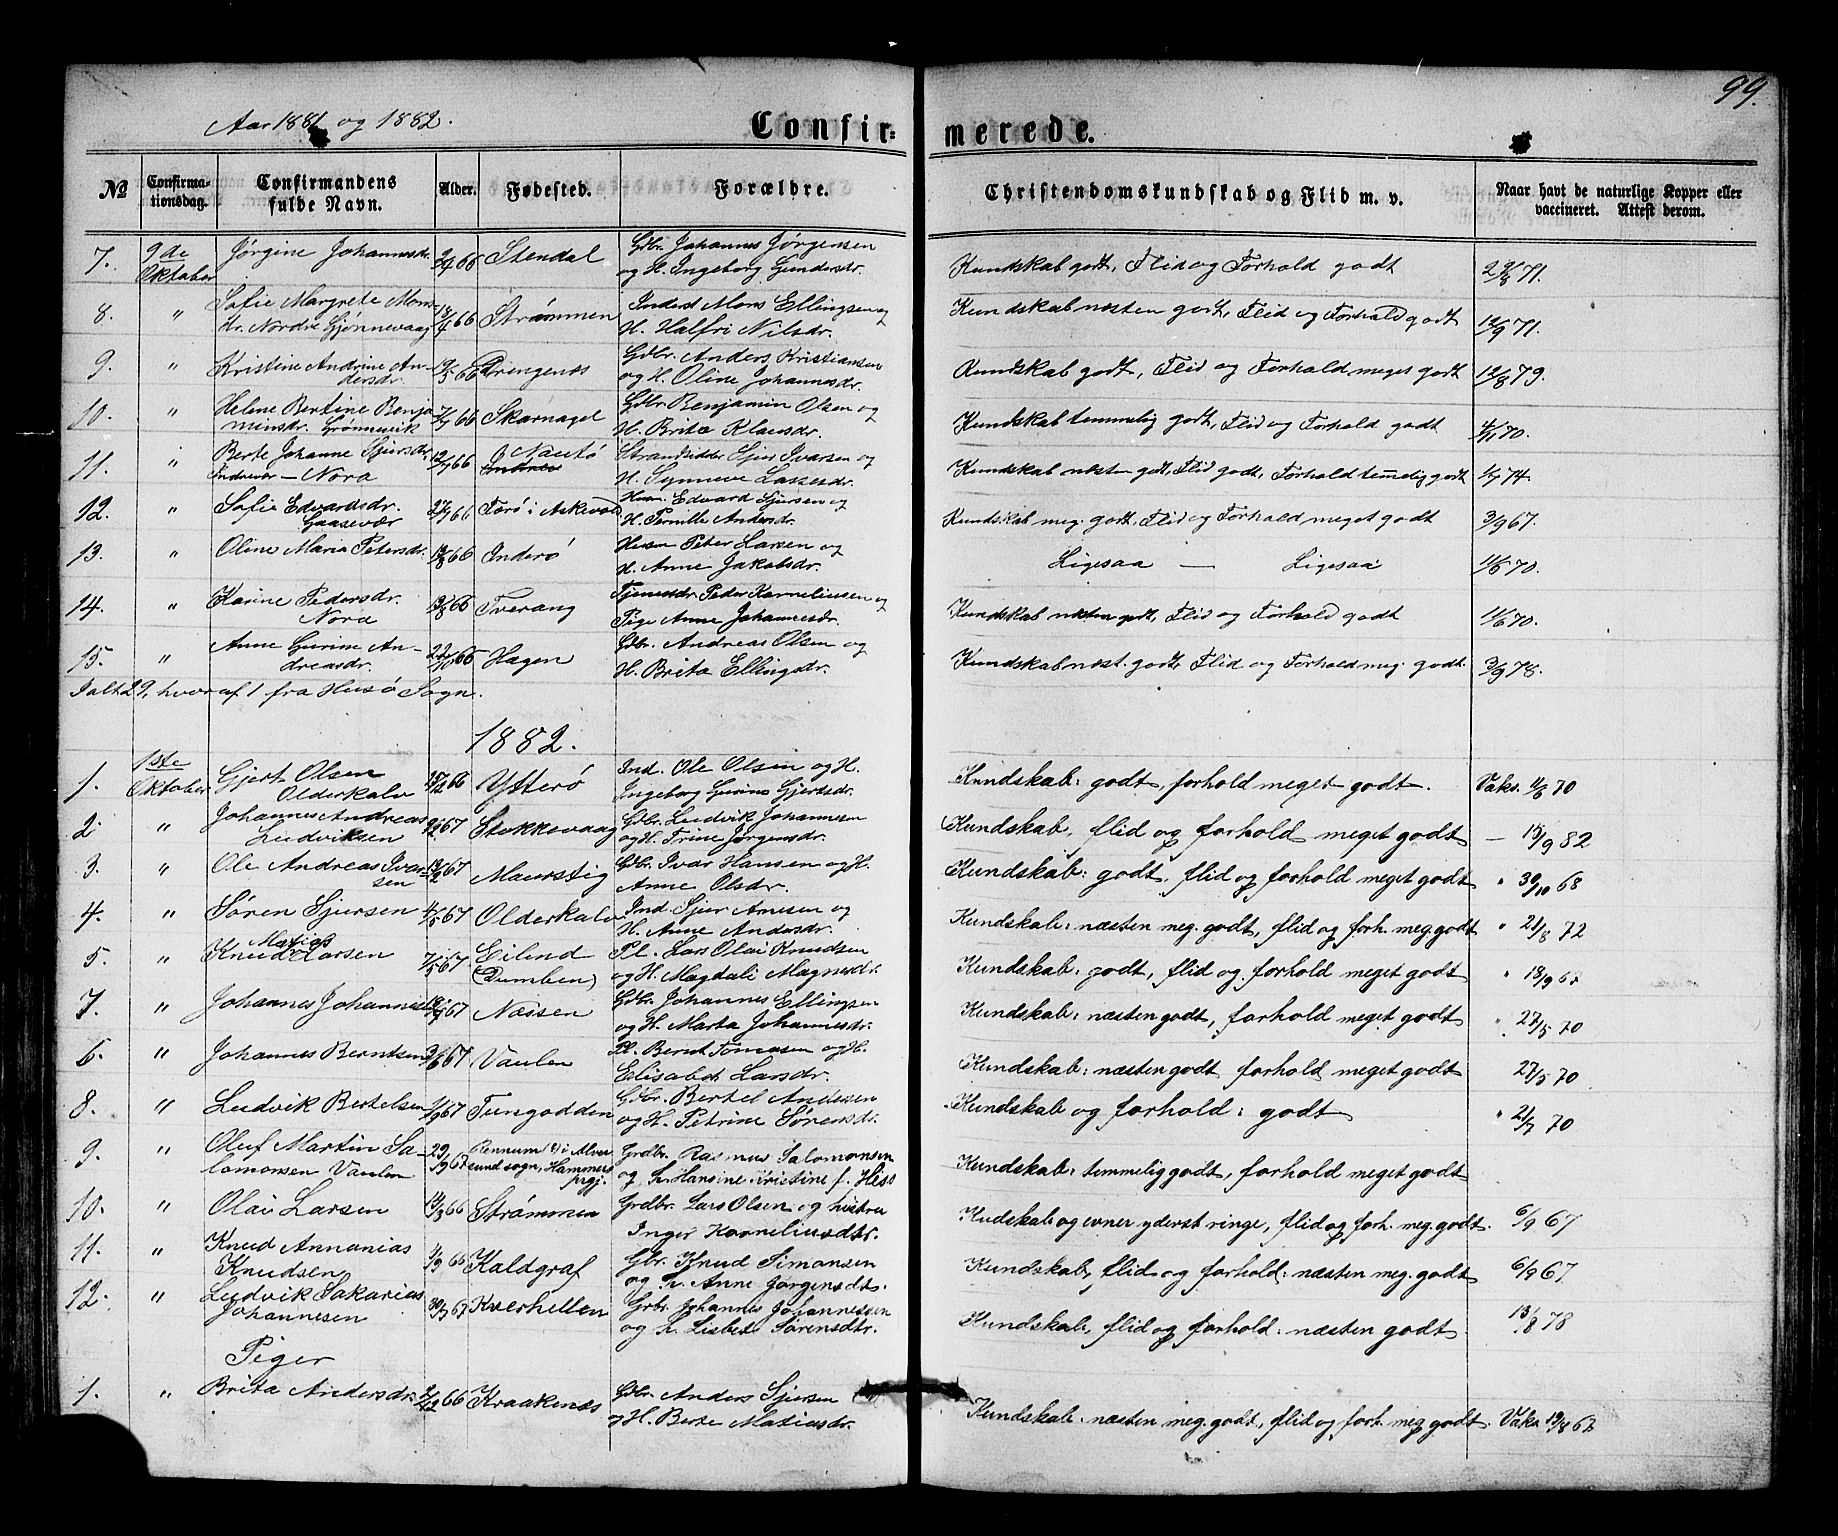 99.
Aar 1881 og 1882.
Confir-merede.
No Confirma-tionsdag. Confirmandens fulde Navn. Alder. Fødested. Forældre. Christendomskundskab og Flid m. v. Naar havt de naturlige Kopper eller vaccineret. Attest derom.
7. 9de Oktober Jørgine Johannesdr. 66 Stendal Gdbr. Johannes Jørgensen og H. Ingeborg Gundersdr. Kundskab godt, Flid og Forhold godt 71.
8. " Sofie Margrete Mons-dr. Nordre Gjønnevaag 18/4 66 Strømmen Inderst Mons Ellingsen og H. Halfri Nilsdr. Kundskab næsten godt, Flid og Forhold godt 12/9 71.
9. " Kristine Andrine An-dersdr. 66 Drengenes Gdbr. Anders Kristiansen og H. Oline Johannesdr. Kundskab godt, Flid og Forhold meget godt 12/8 79.
10. " Helene Bertine Benja-minsdr. Grønnevik 66 Skarnagel Gdbr. Benjamin Olsen og H. Brita Klausdr. Kundskab temmelig godt, Flid og Forhold godt 70.
11. " Berte Johanne Sjursdr. Indrevær – Nora 12/7 66 Nautø Strandsidder Sjur Ivarsen og H. Synneve Lassesdr. Kundskab næsten godt, Flid godt, Forhold temelig godt 74.
12. " Sofie Edvardsdr. Gaasevær 27/7 66 Færø i Askevold Husm. Edvard Sjursen og H. Pernille Andersdr. Kundskab meg. godt, Flid og Forhold meget godt 3/9 67.
13. " Oline Maria Petersdr. 66 Inderø Husm Peter Larsen og H. Anne Jakobsdr. Ligesaa — Ligesaa 11/6 70.
14. " Karine Pedersdr. Nora 66 Tverang Tjenestdr. Peder Korneliusen og Pige Anne Johannesdr. Kundskab næsten godt, Flid og Forhold godt 11/6 70.
15. " Anne Gurine An-dreasdr. 22/10 66 Hagen Gdbr. Andreas Olsen og H. Brita Ellingsdr. Kundskab næst. godt, Flid og Forhold meg. godt. 3/9 78.
Ialt 29, hvoraf 1 fra Husø Sogn.
1882.
1. 1ste Oktober Gjert Olsen Olderkalv 66 Ytterø Ind. Ole Olsen og H. Ingeborg Gurine Gjertsdr. Kundskab: godt, forhold meget godt. Vaks. 11/6 70
2. " Johannes Andreas Ludviksen 67 Stokkevaag Gdbr. Ludvik Johannesen og H. Trine Jørgensdr. Kundskab, flid og forhold meget godt – 15/9 82
3. " Ole Andreas Ivar-sen 67 Maurstig Gdbr. Ivar Hansen og H. Anne Olsdr. Kundskab: godt, flid og forhold meget godt " 30/10 68
4. " Søren Sjursen 4/5 67 Olderkalv Ind. Sjur Arnesen og H. Anne Andersdr. Kundskab: næsten meg. godt, flid og forh. meg. godt " 21/8 72
5. " Knud Matias Larsen 7/5 67 Eilend (Dumben) Pl. Lars Olai Knudsen og H. Magdali Magnusdr. Kundskab: godt, flid og forhold meget godt " 18/9 68
7. " Johannes Johannes 67 Næssen Gdbr. Johannes Ellingsen og H. Marta Johannesdr. Kundskab: næsten godt, forhold meget godt " 27/5 70
6. " Johannes Berntsen 3/6 67 Vaulen Pl. Bernt Tomasen og H. Elisabet Larsdr. Kundskab: næsten godt forhold meget godt 27/5 70
8. " Ludvik Bertelsen 67 Tungodden Gdbr. Bertel Andersen og H. Petrine Sørensdr. Kundskab og forhold: godt " 21/7 70
9. " Oluf Martin Sa-lomonsen Vaulen 29/9 67 Rennum (?) i Alver sund sogn, Hammers prgj. Grdbr. Rasmus Salomonsen og h. Hansine Kristine f. Kundskab: temmelig godt, forhold meget godt
10. " Olai Larsen 14/3 66 Strømmen Grdbr. Lars Olsen og hustru Inger Korneliusdtr. Kudskab og evner yderst ringe, flid og forh. meg. godt. 6/9 67
11. " Knud Annanias Knudsen 1/9 66 Kaldgraf Gbr. Knud Simonsen og h. Anne Jørgensdt. Kundskab, flid og forhold: næsten meg. godt 6/9 67
12. " Ludvik Sakarias Johannesen 30/3 67 Kverhellen Grbr. Johannes Johannessen og h. Lisbet Sørensdtr. Kundskab, flid og forhold: næsten godt. 13/8 78
Piger
1. " Brita Andersdr. 2/12 66 Kraakenæs Gdbr. Anders Sjursen og H. Berte Matiasdr. Kundskab: næsten meg. godt, flid og forh. meg godt. Vaks 19/8 67